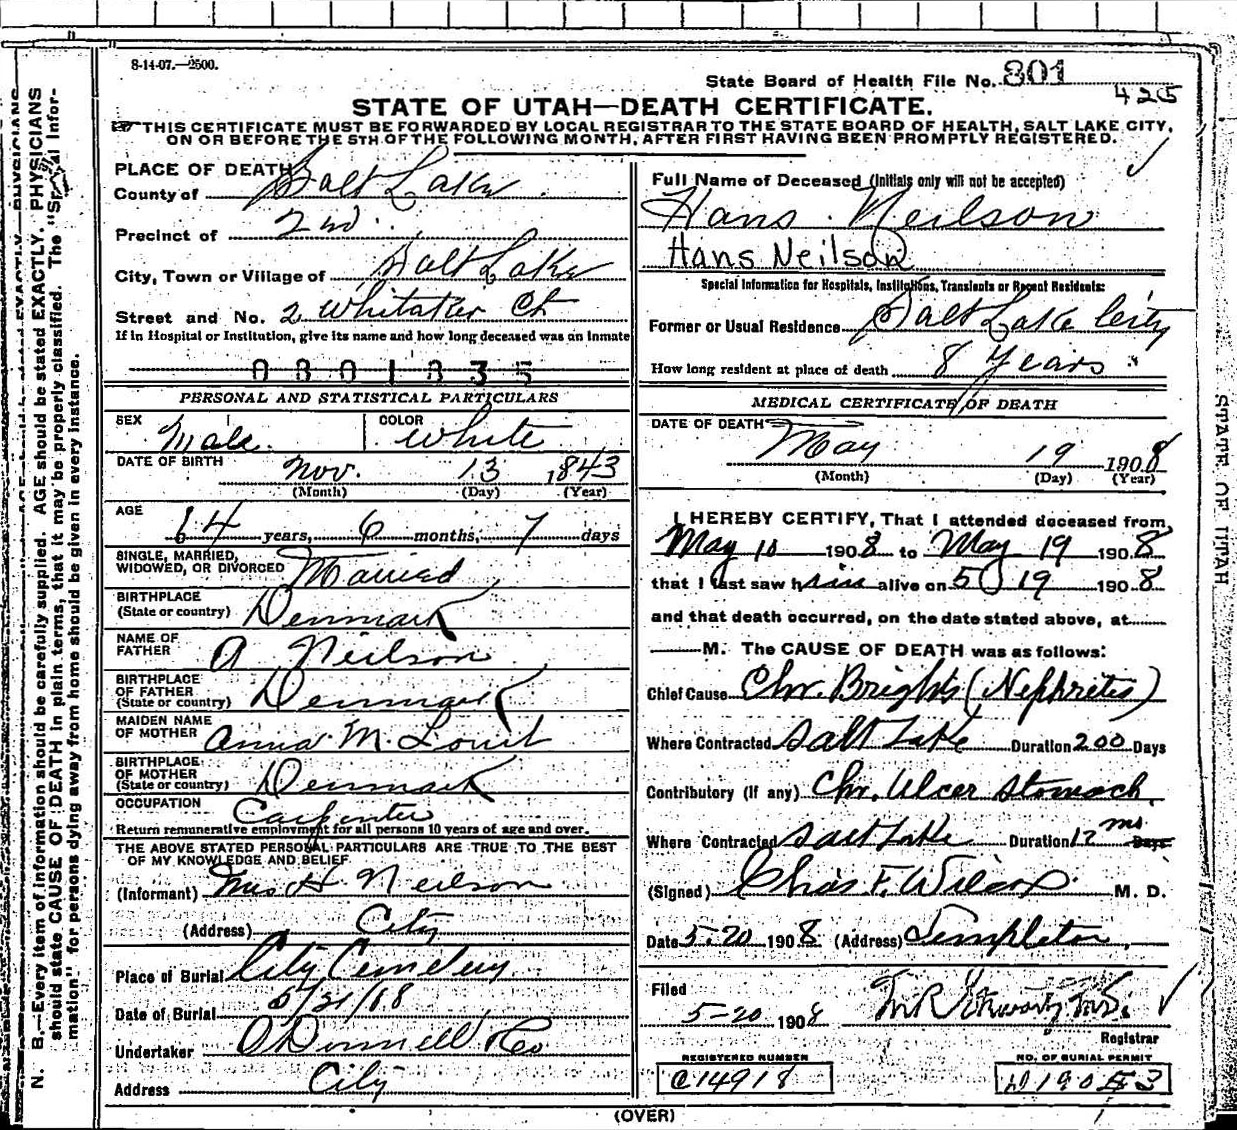 8-14-07.—2500.
State Board of Health File No. 801
425
STATE OF UTAH—DEATH CERTIFICATE.
THIS CERTIFICATE MUST BE FORWARDED BY LOCAL REGISTRAR TO THE STATE BOARD OF HEALTH, SALT LAKE CITY,
ON OR BEFORE THE 5TH OF THE FOLLOWING MONTH, AFTER FIRST HAVING BEEN PROMPTLY REGISTERED.
PLACE OF DEATH
County of Salt Lake
Precinct of 2nd
City, Town or Village of Salt Lake
Street and No. 2 Whitaker Ct
If in Hospital or Institution, give its name and how long deceased was an inmate
0801835
PERSONAL AND STATISTICAL PARTICULARS
SEX Male COLOR White
DATE OF BIRTH Nov. 13 1843
(Month) (Day) (Year)
AGE 64 years, 6 months, 7 days
SINGLE, MARRIED,
WIDOWED, OR DIVORCED Married
BIRTHPLACE
(State or country) Denmark
NAME OF
FATHER A Neilson
BIRTHPLACE
OF FATHER
(State or country) Denmark
MAIDEN NAME
OF MOTHER Anna M.
BIRTHPLACE
OF MOTHER
(State or country) Denmark
OCCUPATION Carpenter
Return remunerative employment for all persons 10 years of age and over.
THE ABOVE STATED PERSONAL PARTICULARS ARE TRUE TO THE BEST
OF MY KNOWLEDGE AND BELIEF
(Informant) Mrs H. Neilson
(Address) City
Place of Burial City Cemetery
Date of Burial 5/21/08
Undertaker O'Donnell & Co
Address City
Full Name of Deceased (Initials only will not be accepted)
Hans Neilson
Hans Neilson
Special Information for Hospitals, Institutions, Transients or Recent Residents:
Former or Usual Residence Salt Lake City
How long resident at place of death 8 Years
MEDICAL CERTIFICATE OF DEATH
DATE OF DEATH
May 19 1908
(Month) (Day) (Year)
I HEREBY CERTIFY, That I attended deceased from
May 10 1908 to May 19 1908
that I last saw him alive on 5 19 1908
and that death occurred, on the date stated above, at
M. The CAUSE OF DEATH was as follows:
Chief Cause Chr. Brights (Nephritis)
Where Contracted Salt Lake Duration 200 Days
Contributory (If any) Chr. Ulcer Stomach
Where Contracted Salt Lake Duration 12 ms Days
(Signed) Chas F. Wilcox M. D.
Date 5-20 1908 (Address) Templeton
Filed
5-20 1908
Registrar
REGISTERED NUMBER
C14918
NO. OF BURIAL PERMIT
(OVER)
N. B.—Every item of information should be carefully supplied. AGE should be stated EXACTLY. PHYSICIANS
should state CAUSE OF DEATH in plain terms, that it may be properly classified. The "Special Infor-
mation" for persons dying away from home should be given in every instance.
STATE OF UTAH